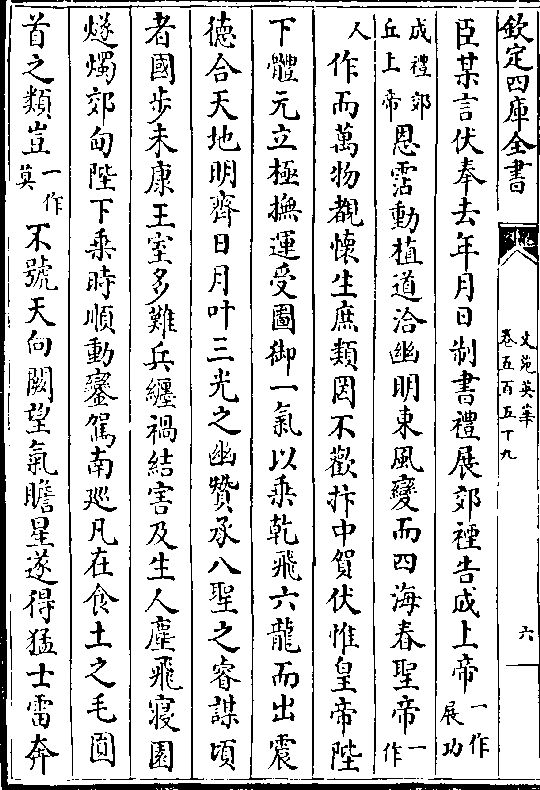 欽定四庫全書
文苑英華
卷五百五十九
六
臣某言伏奉去年月日制書禮展郊禋告成上帝一作展功
成禮郊丘上帝恩霑動植道洽幽明東風變而四海春聖帝一作
人作而萬物覩懷生庶類罔不歡抃中賀伏惟皇帝陛
下體元立極撫運受圖御一氣以乗乾飛六龍而出震
徳合天地明齊日月叶三光之幽贊承八聖之睿謀頃
者國步未康王室多難兵纒禍結害及生人塵飛寢園
燧燭郊甸陛下乗時順動鑾駕南巡凡在食土之毛圎
首之類豈一作莫不號天向闕望氣瞻星遂得猛士雷奔